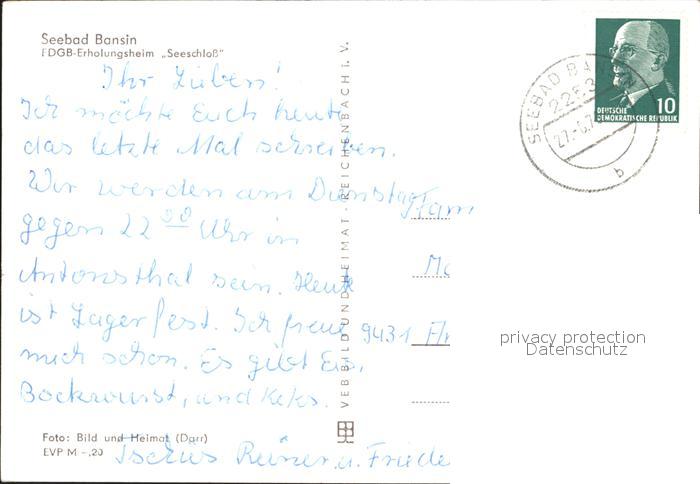 Seebad Bansin
FDGB-Erholungsheim „Seeschloß"
Ihr Lieben!
Ich möchte Euch heute
das letzte Mal schreiben.
Wir werden am Dienstag
gegen 22 00 Uhr in
Antonsthal sein. Heute
ist Lagerfest. Ich freue
mich schon. Es gibt Eis,
Bockwurst, und Keks.
Tschüs Reiner u. Friede
Foto: Bild und Heimat (Darr)
EVP M -,20
VEB BILD UND HEIMAT · REICHENBACH i. V.
SEEBAD BA
2253
27.-6.7
b
DEUTSCHE
DEMOKRATISCHE REPUBLIK
10
Fam
9431
privacy protection
Datenschutz